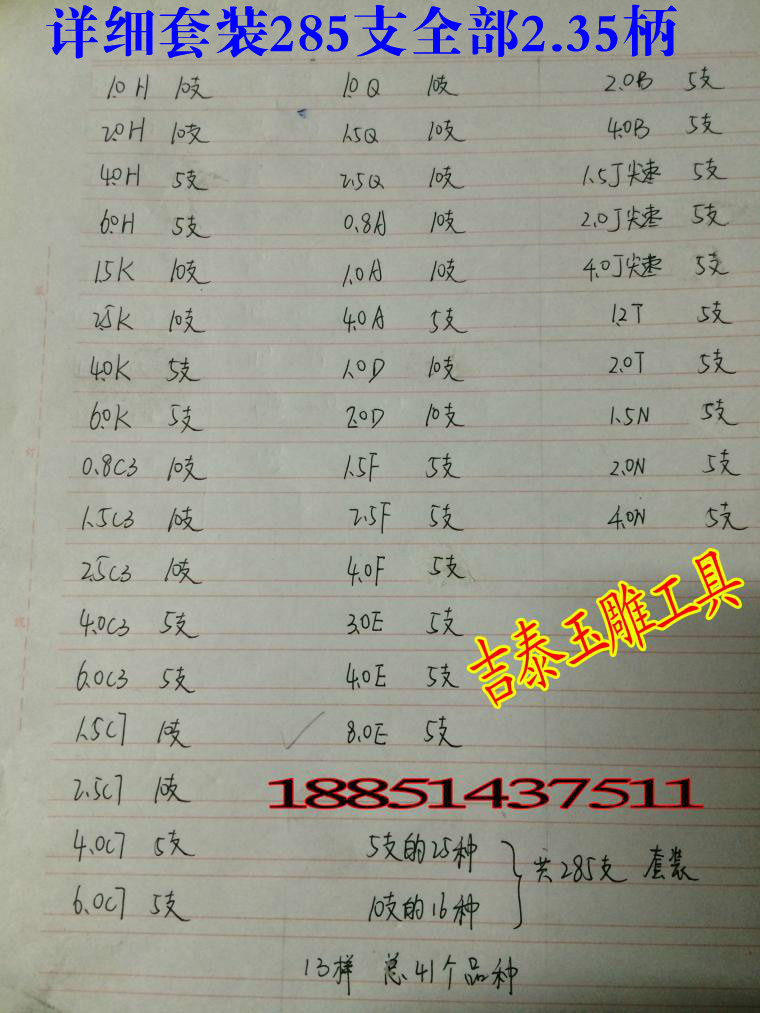 详细套装285支全部2.35柄
1.0H 10支
2.0H 10支
4.0H 5支
6.0H 5支
1.5K 10支
2.5K 10支
4.0K 5支
6.0K 5支
0.8C3 10支
1.5C3 10支
2.5C3 10支
4.0C3 5支
6.0C3 5支
1.5C7 10支
2.5C7 10支
4.0C7 5支
6.0C7 5支
1.0Q 10支
1.5Q 10支
2.5Q 10支
0.8A 10支
1.0A 10支
4.0A 5支
1.0D 10支
2.0D 10支
1.5F 5支
2.5F 5支
4.0F 5支
3.0E 5支
4.0E 5支
8.0E 5支
2.0B 5支
4.0B 5支
1.5J尖枣 5支
2.0J尖枣 5支
4.0J尖枣 5支
1.2T 5支
2.0T 5支
1.5N 5支
2.0N 5支
4.0N 5支
吉泰玉雕工具
18851437511
5支的25种
10支的16种
共285支 套装
13样 总41个品种